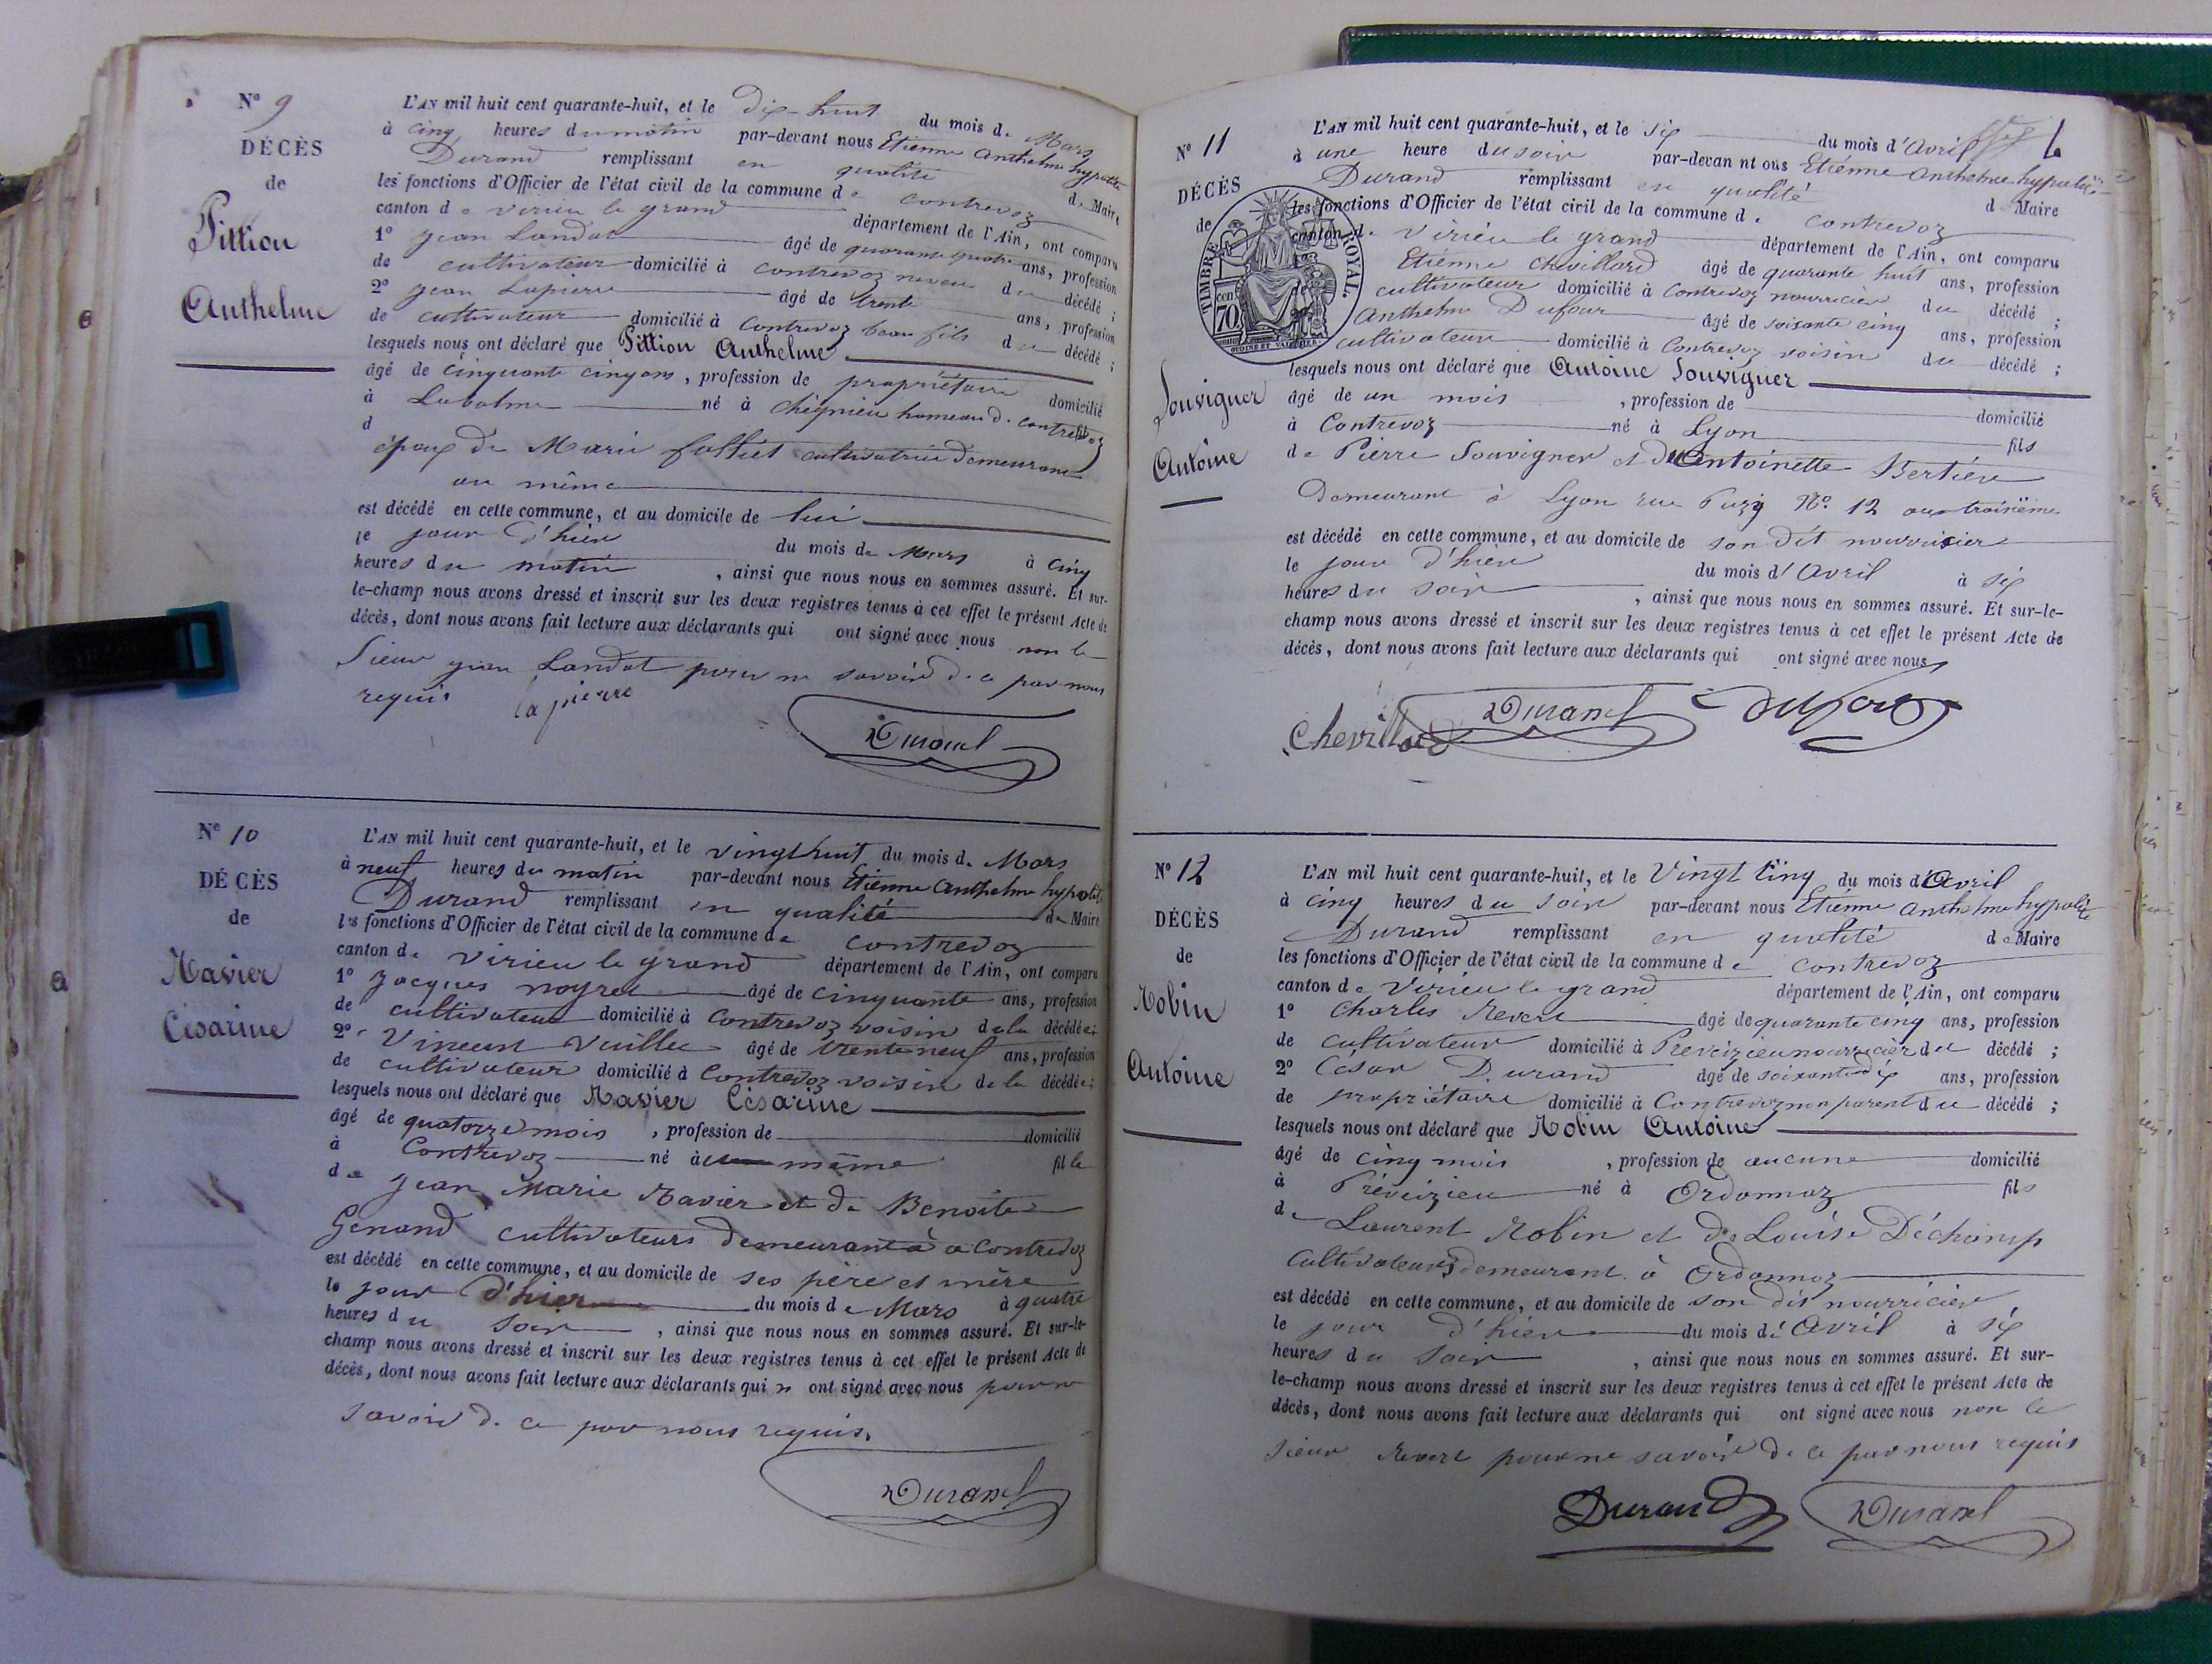 N° 9
DÉCÈS
de
Pittion
Anthelme
L'AN mil huit cent quarante-huit, et le dix-huit du mois de Mars
à cinq heures du matin par-devant nous Etienne Anthelme hypolite
Durand remplissant en qualité de Maire
les fonctions d'Officier de l'état civil de la commune de Contrevoz
canton de Virieu le grand département de l'Ain, ont comparu
1° Jean Landot âgé de quarante quatre ans, profession
de cultivateur domicilié à Contrevoz neveu du décédé ;
2° Jean Lapierre âgé de trente ans, profession
de cultivateur domicilié à Contrevoz beau fils du décédé ;
lesquels nous ont déclaré que Pittion Anthelme
âgé de cinquante cinq ans, profession de propriétaire domicilié
à Labalme né à Chégnieu hameau de Contrevoz fil
d
époux de Marie folliet cultivatrice demeurant
au même
est décédé en cette commune, et au domicile de lui
le jour d'hier du mois de Mars à cinq
heures du matin, ainsi que nous nous en sommes assuré. Et sur-
le-champ nous avons dressé et inscrit sur les deux registres tenus à cet effet le présent Acte de
décès, dont nous avons fait lecture aux déclarants qui ont signé avec nous non le
Sieur Jean Landot pour ne savoir de ce par nous
requis
la pierre
Durand
N° 10
DÉCÈS
de
Ravier
Césarine
L'AN mil huit cent quarante-huit, et le vingt huit du mois de Mars
à neuf heures du matin par-devant nous Etienne Anthelme hypolite
Durand remplissant en qualité de Maire
les fonctions d'Officier de l'état civil de la commune de Contrevoz
canton de Virieu le grand département de l'Ain, ont comparu
1° Jacques noyret âgé de cinquante ans, profession
de cultivateur domicilié à Contrevoz voisin de la décédée ;
2° Vincent Vuillet âgé de trente neuf ans, profession
de cultivateur domicilié à Contrevoz voisin de la décédée ;
lesquels nous ont déclaré que Ravier Césarine
âgé de quatorze mois, profession de domicilié
à Contrevoz né au même fille
de Jean Marie Ravier et de Benoite
Genand cultivateurs demeurant à Contrevoz
est décédé en cette commune, et au domicile de ses père et mère
le jour d'hier du mois de Mars à quatre
heures du soir, ainsi que nous nous en sommes assuré. Et sur-le-
champ nous avons dressé et inscrit sur les deux registres tenus à cet effet le présent Acte de
décès, dont nous avons fait lecture aux déclarants qui n ont signé avec nous pour ne
savoir de ce par nous requis.
Durand
N° 11
DÉCÈS
de
TIMBRE ROYAL.
70 cen.
Souvigner
Antoine
L'AN mil huit cent quarante-huit, et le six du mois d'Avril
à une heure du soir par-devan nt ous Etiénne Anthelme hypolite
Durand remplissant en qualité de Maire
les fonctions d'Officier de l'état civil de la commune de Contrevoz
canton de Viriéu le grand département de l'Ain, ont comparu
Etiénne Chevillard âgé de quarante huit ans, profession
cultivateur domicilié à Contrevoz nourricier du décédé ;
Anthelme Dufour âgé de soixante cinq ans, profession
cultivateur domicilié à Contrevoz voisin du décédé ;
lesquels nous ont déclaré que Antoine Souvigner
âgé de un mois, profession de domicilié
à Contrevoz né à Lyon fils
de Pierre Souvigner et de Antoinette Bertiére
Demeurant à Lyon rue Puzy N° 12 au troisième
est décédé en cette commune, et au domicile de son dit nourricier
le jour d'hier du mois d'Avril à six
heures du soir, ainsi que nous nous en sommes assuré. Et sur-le-
champ nous avons dressé et inscrit sur les deux registres tenus à cet effet le présent Acte de
décès, dont nous avons fait lecture aux déclarants qui ont signé avec nous
Chevillard Durand dufour
N° 12
DÉCÈS
de
Robin
Antoine
L'AN mil huit cent quarante-huit, et le Vingt Cinq du mois d'Avril
à cinq heures du soir par-devant nous Etiénne Anthelme hypolite
Durand remplissant en qualité de Maire
les fonctions d'Officier de l'état civil de la commune de Contrevoz
canton de Viriéu le grand département de l'Ain, ont comparu
1° Charles Revert âgé de quarante cinq ans, profession
de cultivateur domicilié à Preveizieu nourricier du décédé ;
2° César Durand âgé de soixante dix ans, profession
de propriétaire domicilié à Contrevoz non parent du décédé ;
lesquels nous ont déclaré que Robin Antoine
âgé de cinq mois, profession de aucune domicilié
à Préveizieu né à Ordonnaz fils
de Laurent Robin et de Louise Déchamp
Cultivateurs demeurant à Ordonnaz
est décédé en cette commune, et au domicile de son dit nourricier
le jour d'hier du mois d'Avril à six
heures du soir, ainsi que nous nous en sommes assuré. Et sur-
le-champ nous avons dressé et inscrit sur les deux registres tenus à cet effet le présent Acte de
décès, dont nous avons fait lecture aux déclarants qui ont signé avec nous non le
Sieur Revert pour ne savoir de ce par nous requis
Durand Durand